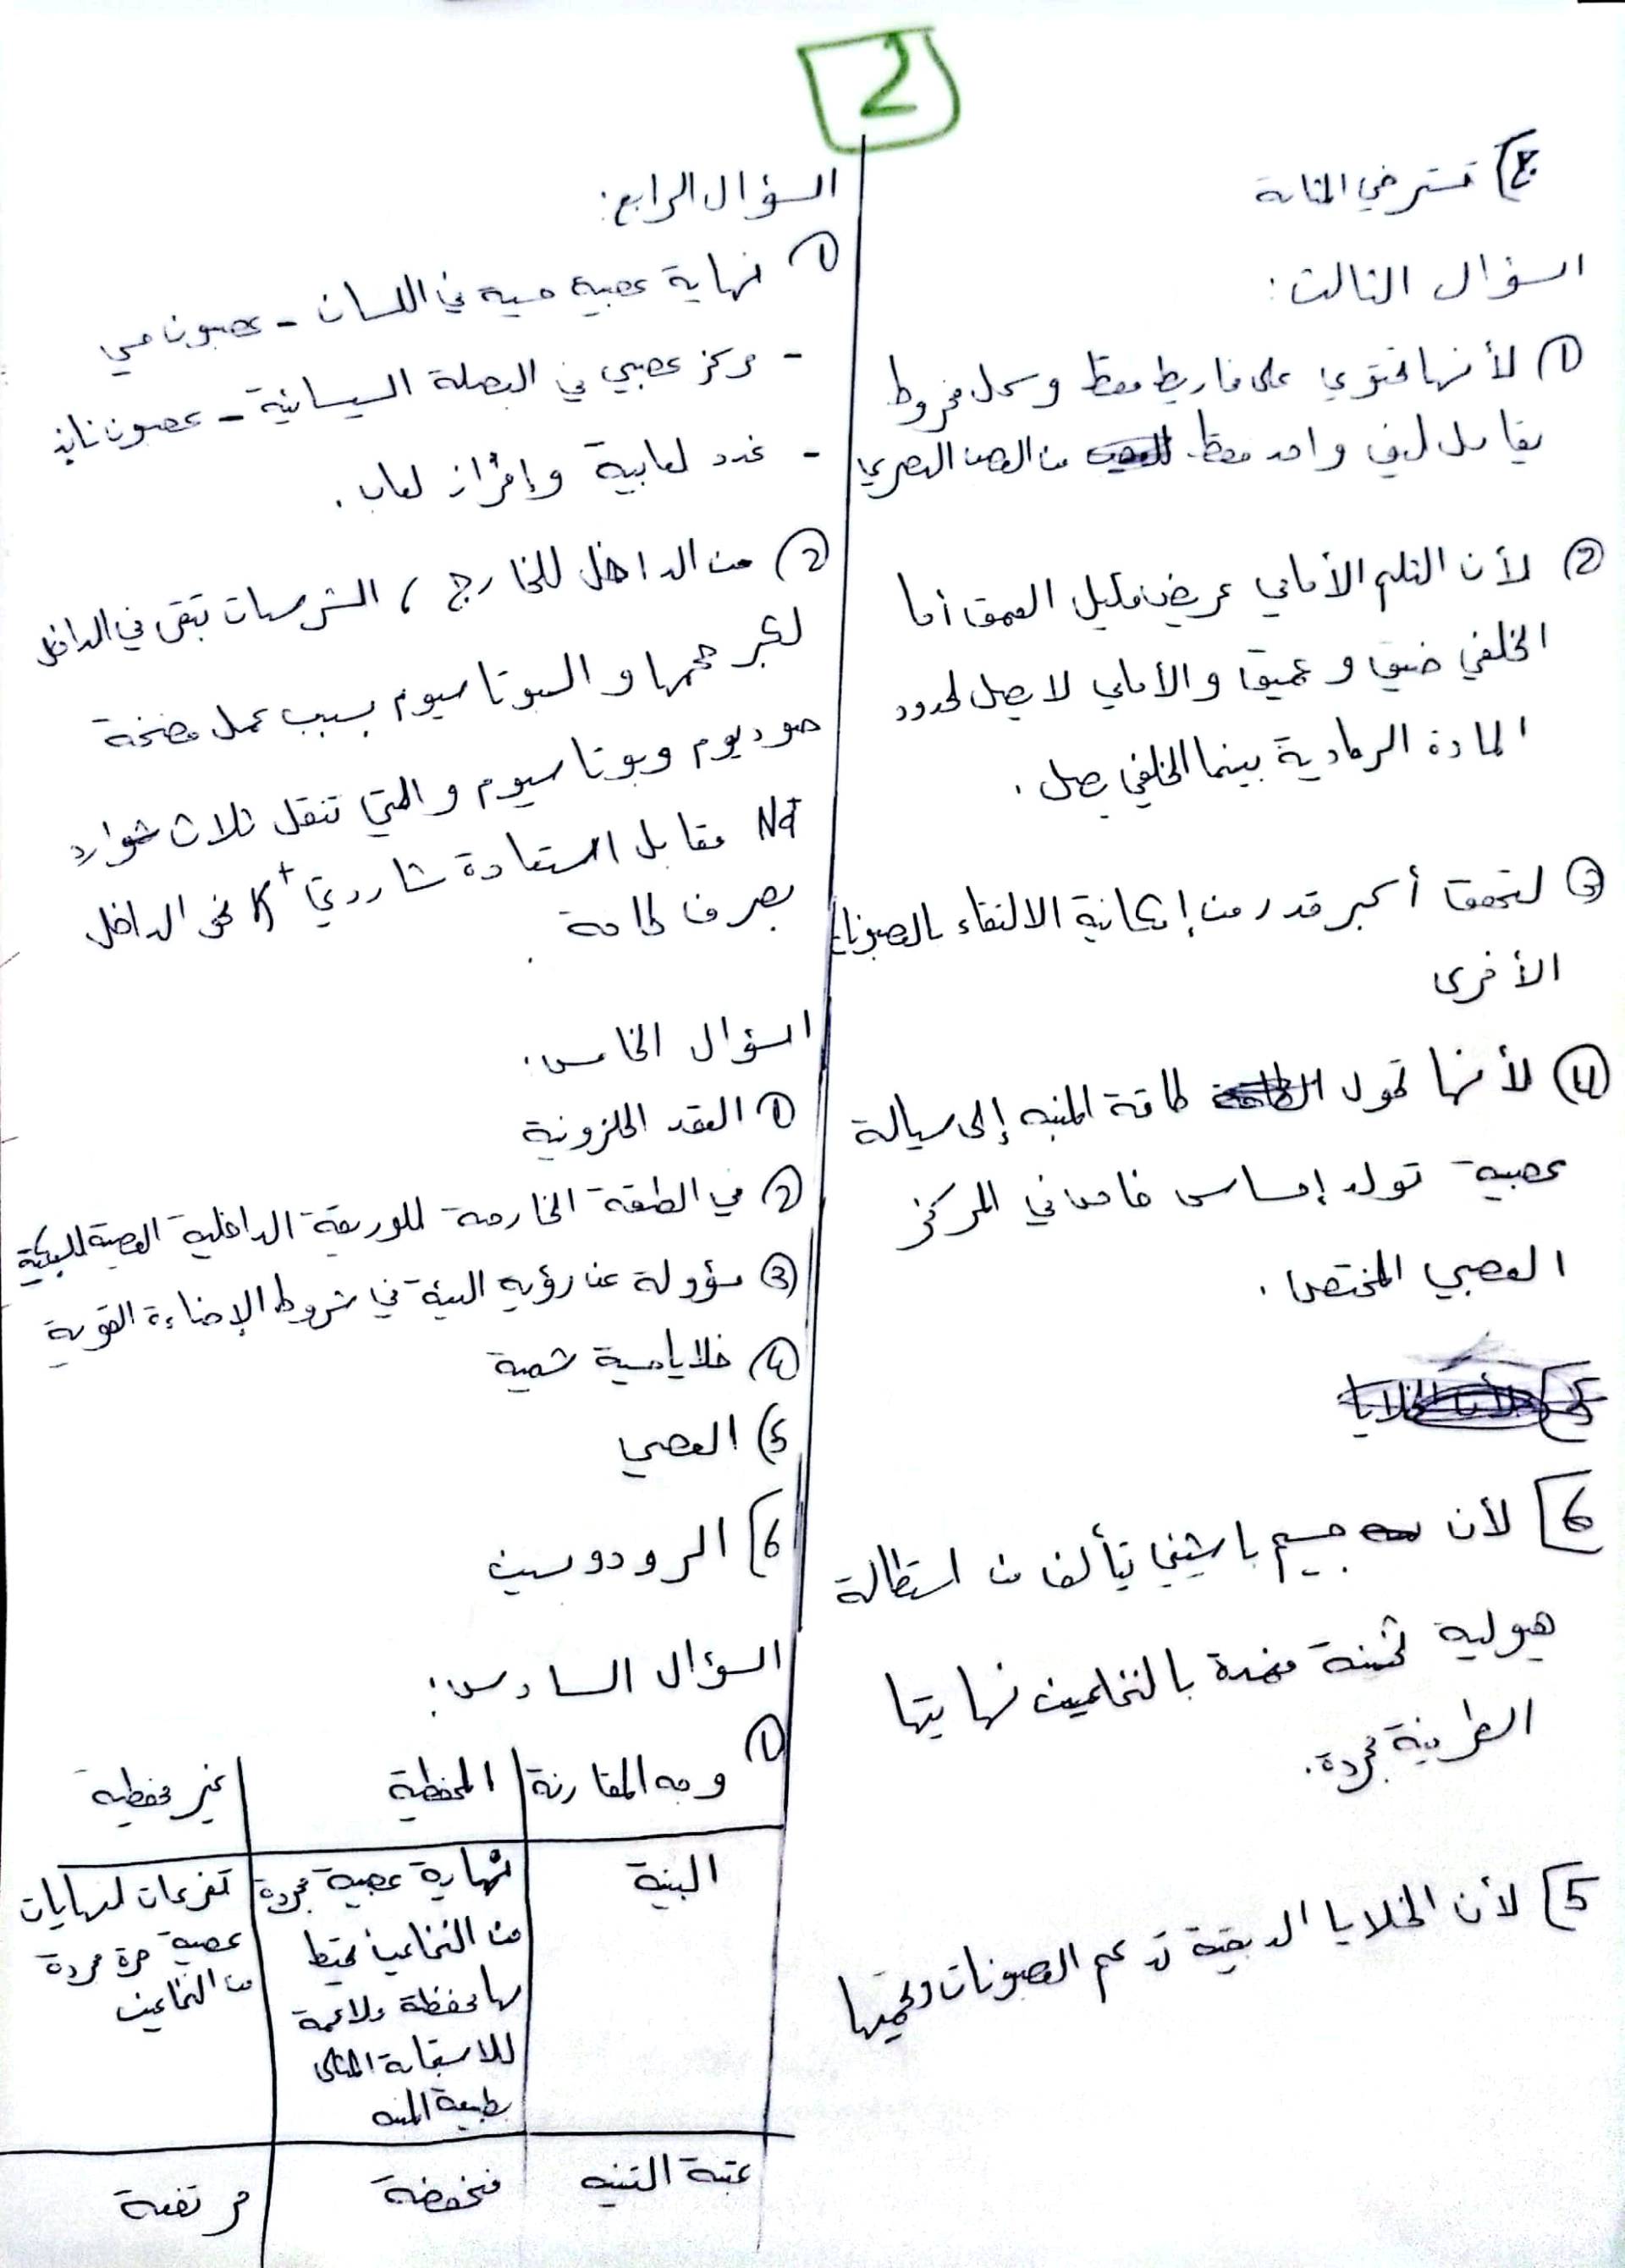 2
ج) تسترخي المثانة
السؤال الثالث:
① لأنها تحتوي على مخاريط فقط وكل مخروط
يقابل ليف واحد فقط من العصب البصري
② لأن الثلم الأمامي عريض وقليل العمق أما
الخلفي ضيق وعميق والأمامي لا يصل لحدود
المادة الرمادية بينما الخلفي يصل.
③ لتحقق أكبر قدر من إمكانية الالتقاء بالعصبونات
الأخرى
④ لأنها تحول طاقة المنبه إلى سيالة
عصبية تولد إحساس خاص في المركز
العصبي المختص.
6] لأن جسيم باشيني يتألف من استطالة
هيولية ثخينة مغمدة بالنخاعين نهايتها
الطرفية مجردة.
5] لأن الخلايا الدبقية تدعم العصبونات وتحميها
السؤال الرابع:
① نهاية عصبية حسية في اللسان - عصبون حسي
- مركز عصبي في البصلة السيسائية - عصبون نابذ
- غدد لعابية وإفراز لعاب.
② من الداخل للخارج، الشرسبات تبقى في الداخل
لكبر حجمها والبوتاسيوم بسبب عمل مضخة
صوديوم وبوتاسيوم والتي تنقل ثلاث شوارد
Na+ مقابل استعادة شاردتي K+ نحو الداخل
بصرف طاقة.
السؤال الخامس:
① العقد الحلزونية
② في الطبقة الخارجية للوريقة الداخلية العصبية للشبكية
③ مسؤولة عن رؤية البيئة في شروط الإضاءة القوية
④ خلايا حسية شمية
5) العصي
6] الرودوبسين
السؤال السادس:
①
وجه المقارنة | المحفظية | غير محفظية
البنية | نهاية عصبية مجردة | تفرعات لنهايات
من النخاعين يحيط | عصبية حرة مجردة
بها محفظة ملائمة | من النخاعين
للاستجابة المثلى
بطبيعة المنبه
عتبة التنبيه | منخفضة | مرتفعة